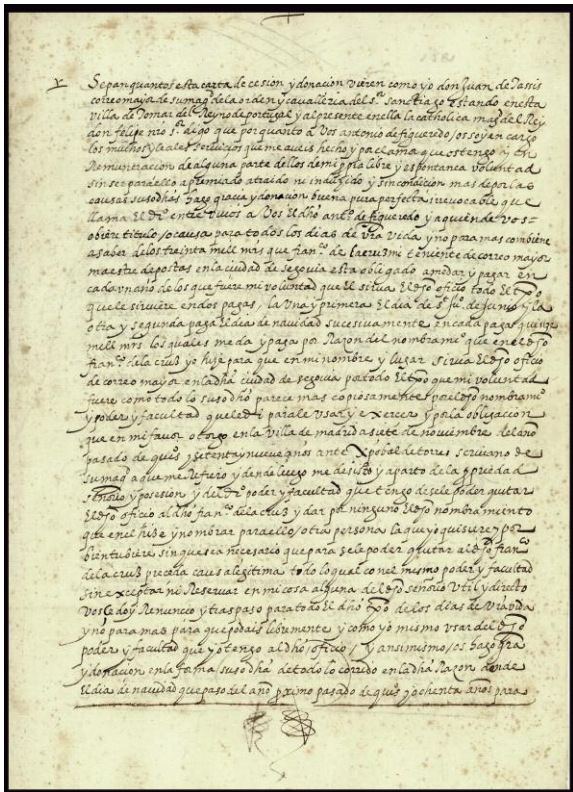 Sepan quantos esta carta de cesion y donacion vieren como yo don Juan de Tassis
correo mayor de su magd de la orden y cavalleria del sr sanctiago estando en esta
villa de Tomar del Reyno de portugal y al presente en ella la catholica magd del Rey
don felipe nro sr digo que por quanto a Vos antonio de figueredo / os soy en cargo
los muchos y leales servicios que me aveis hecho y por el ama que os tengo y en
Remuneracion de alguna parte dellos de mi propia libre y espontanea voluntad
sin ser para ello apremiado atraido ni induzido y sin condicion mas de por las
causas susodhas hago gracia y donacion buena pura perfecta irrevocable que
llama El dro entre vivos a Vos El dho anto de figueredo y a quien de vos
obiere titulo / o causa para todos los dias de vra vida y no para mas conbiene
a saber de los treinta mill mrs que franco de la cruz mi teniente de correo mayor
maestre de postas en la ciudad de segovia esta obligado a me dar y pagar en
cada un año de los que fuere mi voluntad que El sirva El dho oficio todo El tpo
que le sirviere en dos pagas / la Una y primera El dia de st Jun de Junio y la
otra y segunda paga El dia de navidad sucesivamente en cada paga quinze
mill mrs los quales me da y paga por Razon del nombramio que en el dho
franco de la cruz yo hize para que en mi nombre y lugar sirva El dho oficio
de correo mayor en la dha ciudad de segovia por todo El tpo que mi voluntad
fuere como todo lo susodho parece mas copiosamente por el dho nombrami
y poder y facultad que le di para le usar y exercer y por la obligacion
que en mi favor otorgo en la villa de madrid a siete de noviembre del año
pasado de quios y setenta y nueve años ante Xpobal de torres scrivano de
su magd a que me Refiero y dende luego me desisto y aparto de la propiedad
señorio y posesion y del dro poder y facultad que tengo de sele poder quitar
El dho oficio al dho franco de la cruz y dar por ninguno El dho nombramiento
que en el hize y nombrar para ello / otra persona la que yo quisiere y por
bien tubiere sin que sea necesario que para sele poder quitar al dho franco
de la cruz preceda causa legitima todo lo qual con el mismo poder y facultad
sin exceptar ni Reservar en mi cosa alguna del dho señorio Util y directo
Vos cedo y Renuncio y traspaso para todo El dho tpo de los dias de vra vida
y no para mas para que podais libremente y como yo mismo usar del dho
poder y facultad que yo tengo al dho oficio / Y ansimismo / os hago gra
y donacion en la forma susodha de todo lo corrido en la dha Razon dende
El dia de navidad que paso del año proximo pasado de quios y ochenta años para